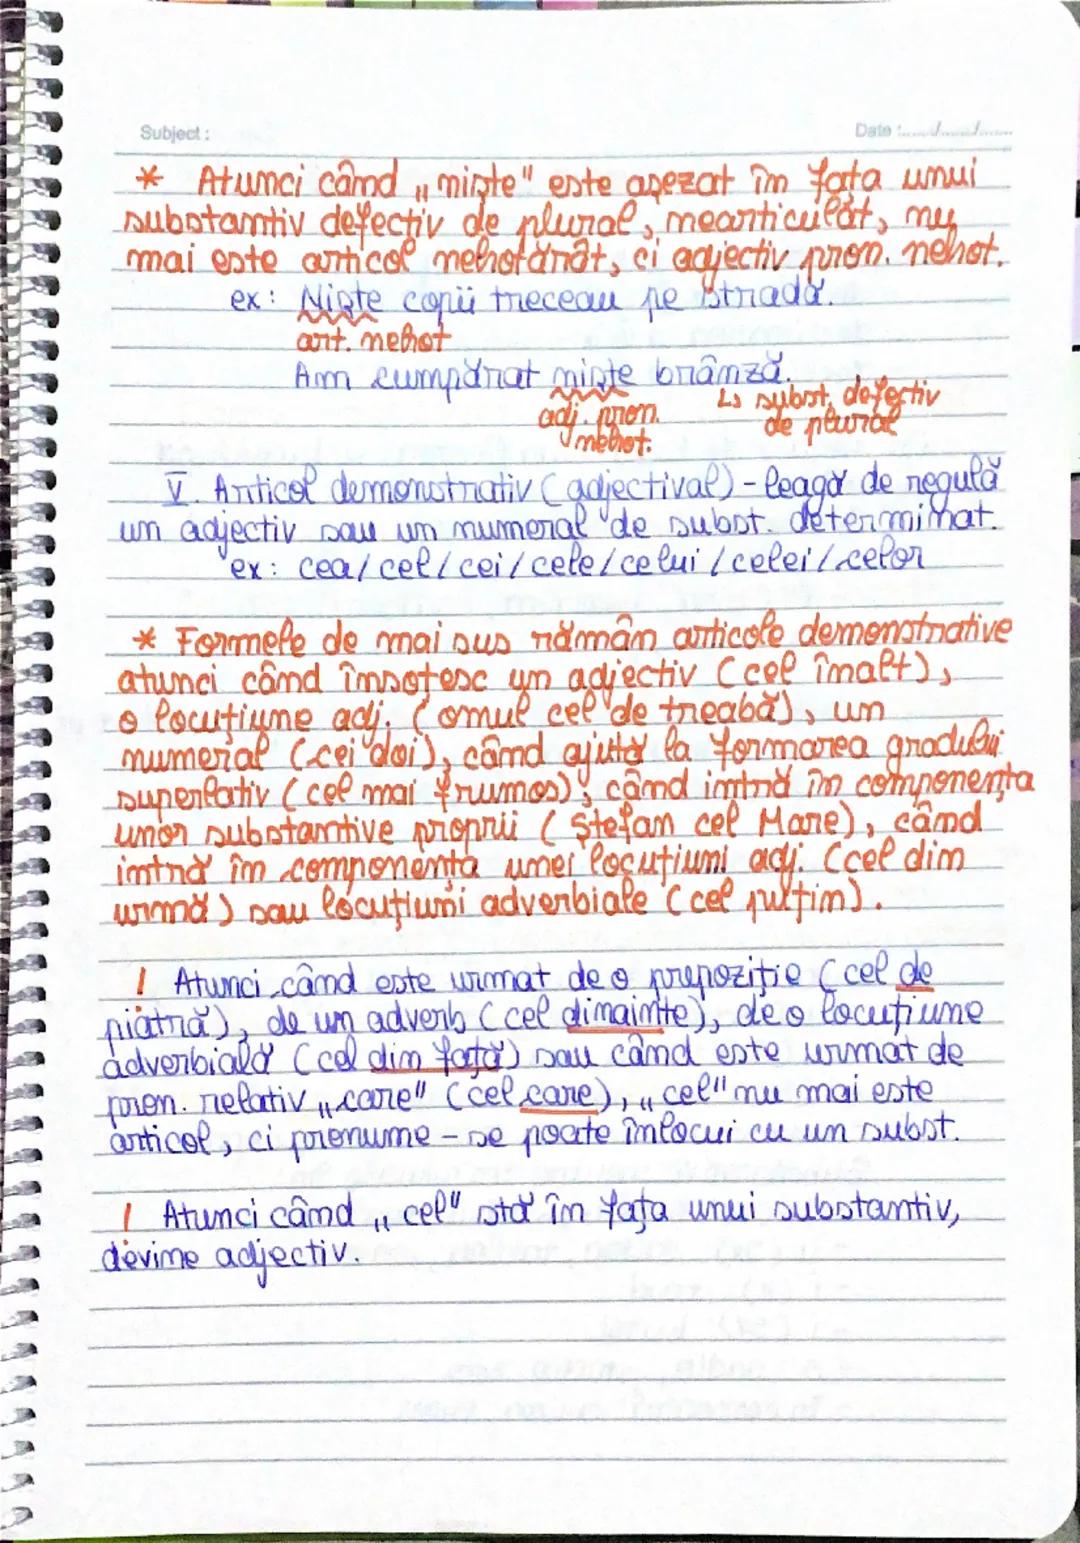 Subject :
Date :....../....../......
* Atunci când „niște" este așezat în fața unui
substantiv defectiv de plural, nearticulat, nu
mai este articol nehotărât, ci adjectiv pron. nehot.
ex: Niște copii treceau pe stradă.
art. nehot
Am cumpărat niște brânză.
adj. pron. nehot.
↳ subst. defectiv de plural
V. Articol demonstrativ (adjectival) - leagă de regulă
un adjectiv sau un numeral de subst. determinat.
ex: cea/cel/cei/cele/celui/celei/celor
* Formele de mai sus rămân articole demonstrative
atunci când însoțesc un adjectiv (cel înalt),
o locuțiune adj. (omul cel de treabă), un
numeral (cei doi), când ajută la formarea gradului
superlativ (cel mai frumos), când intră în componența
unor substantive proprii (Ștefan cel Mare), când
intră în componența unei locuțiuni adj. (cel din
urmă) sau locuțiuni adverbiale (cel puțin).
! Atunci când este urmat de o prepoziție (cel de
piatră), de un adverb (cel dinainte), de o locuțiune
adverbială (cel din față) sau când este urmat de
pron. relativ „care" (cel care), „cel" nu mai este
articol, ci pronume - se poate înlocui cu un subst.
! Atunci când „cel" stă în fața unui substantiv,
devine adjectiv.